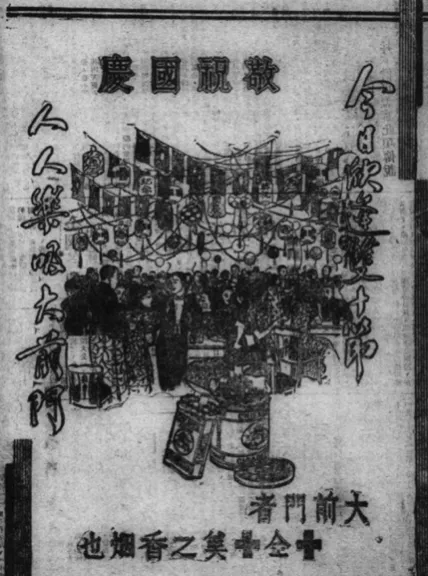 敬祝國慶
今日欣逢雙十節
人人樂吸大前門
大前門者
十全十美之香烟也